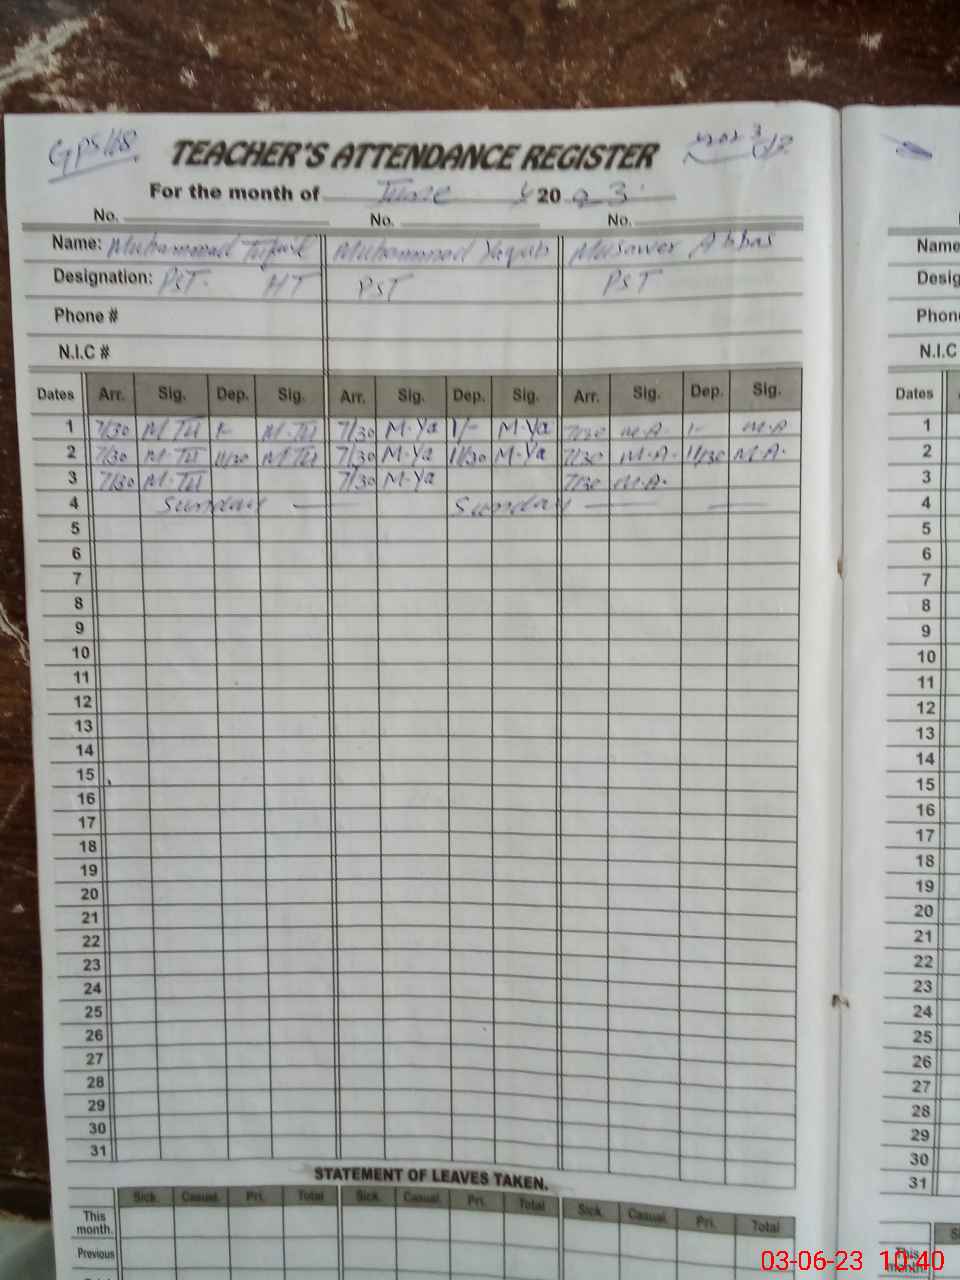 GPS 168 TEACHER'S ATTENDANCE REGISTER
For the month of June 2023
No. No. No.
Name: Muhammad Tufail Muhammad Yaqub Musawer Abbas Name
Designation: PST. HT PST PST Desig
Phone # Phon
N.I.C # N.I.C
Dates Arr. Sig. Dep. Sig. Arr. Sig. Dep. Sig. Arr. Sig. Dep. Sig. Dates
1 7/30 M-Tu 1- M-Tu 7/30 M-Ya 1/- M-Ya 7/30 M.A. 1- M.A 1
2 7/30 M-Tu 11/30 M-Tu 7/30 M-Ya 11/30 M-Ya 7/30 M.A. 11/30 M.A. 2
3 7/30 M-Tu 7/30 M-Ya 7/30 M.A. 3
4 Sunday — Sunday — — 4
5 5
6 6
7 7
8 8
9 9
10 10
11 11
12 12
13 13
14 14
15 15
16 16
17 17
18 18
19 19
20 20
21 21
22 22
23 23
24 24
25 25
26 26
27 27
28 28
29 29
30 30
31 31
STATEMENT OF LEAVES TAKEN.
Sick. Casual. Pri. Total Sick. Casual. Pri. Total Sick. Casual. Pri. Total
This month. This month.
Previous
03-06-23 10:40